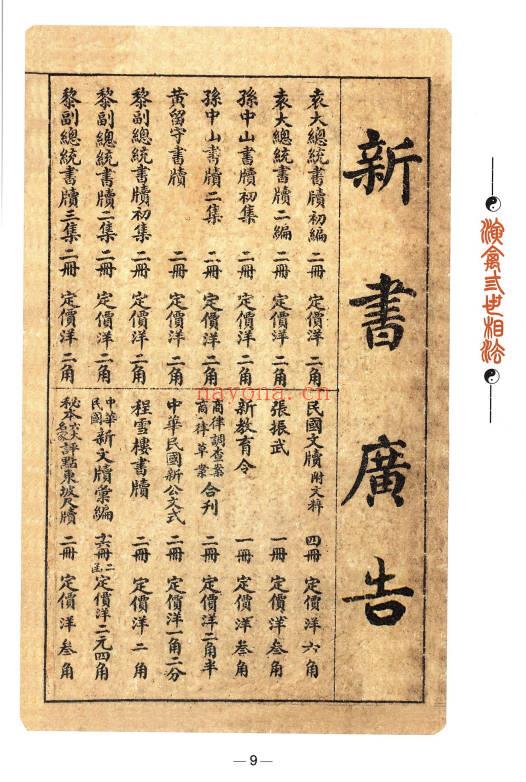 新書廣告
袁大總統書牘初編 二冊 定價洋 二角
袁大總統書牘二編 二冊 定價洋 二角
孫中山書牘初集 二冊 定價洋 二角
孫中山書牘二集 二冊 定價洋 二角
黃留守書牘 二冊 定價洋 二角
黎副總統書牘初集 二冊 定價洋 二角
黎副總統書牘二集 二冊 定價洋 二角
黎副總統書牘三集 二冊 定價洋 二角
民國文牘 附文粹 四冊 定價洋 六角
張振武 一冊 定價洋 叁角
新教育令 一冊 定價洋 叁角
商律調查案 商律草案 合刊 二冊 定價洋 二角半
中華民國新公文式 二冊 定價洋 一角二分
程雪樓書牘 二冊 定價洋 二角
中華民國 新文牘彙編 十六冊二函 定價洋 二元四角
秘本六大家評點東坡尺牘 二冊 定價洋 叁角
演禽三世相法
nayona.cn
—9—